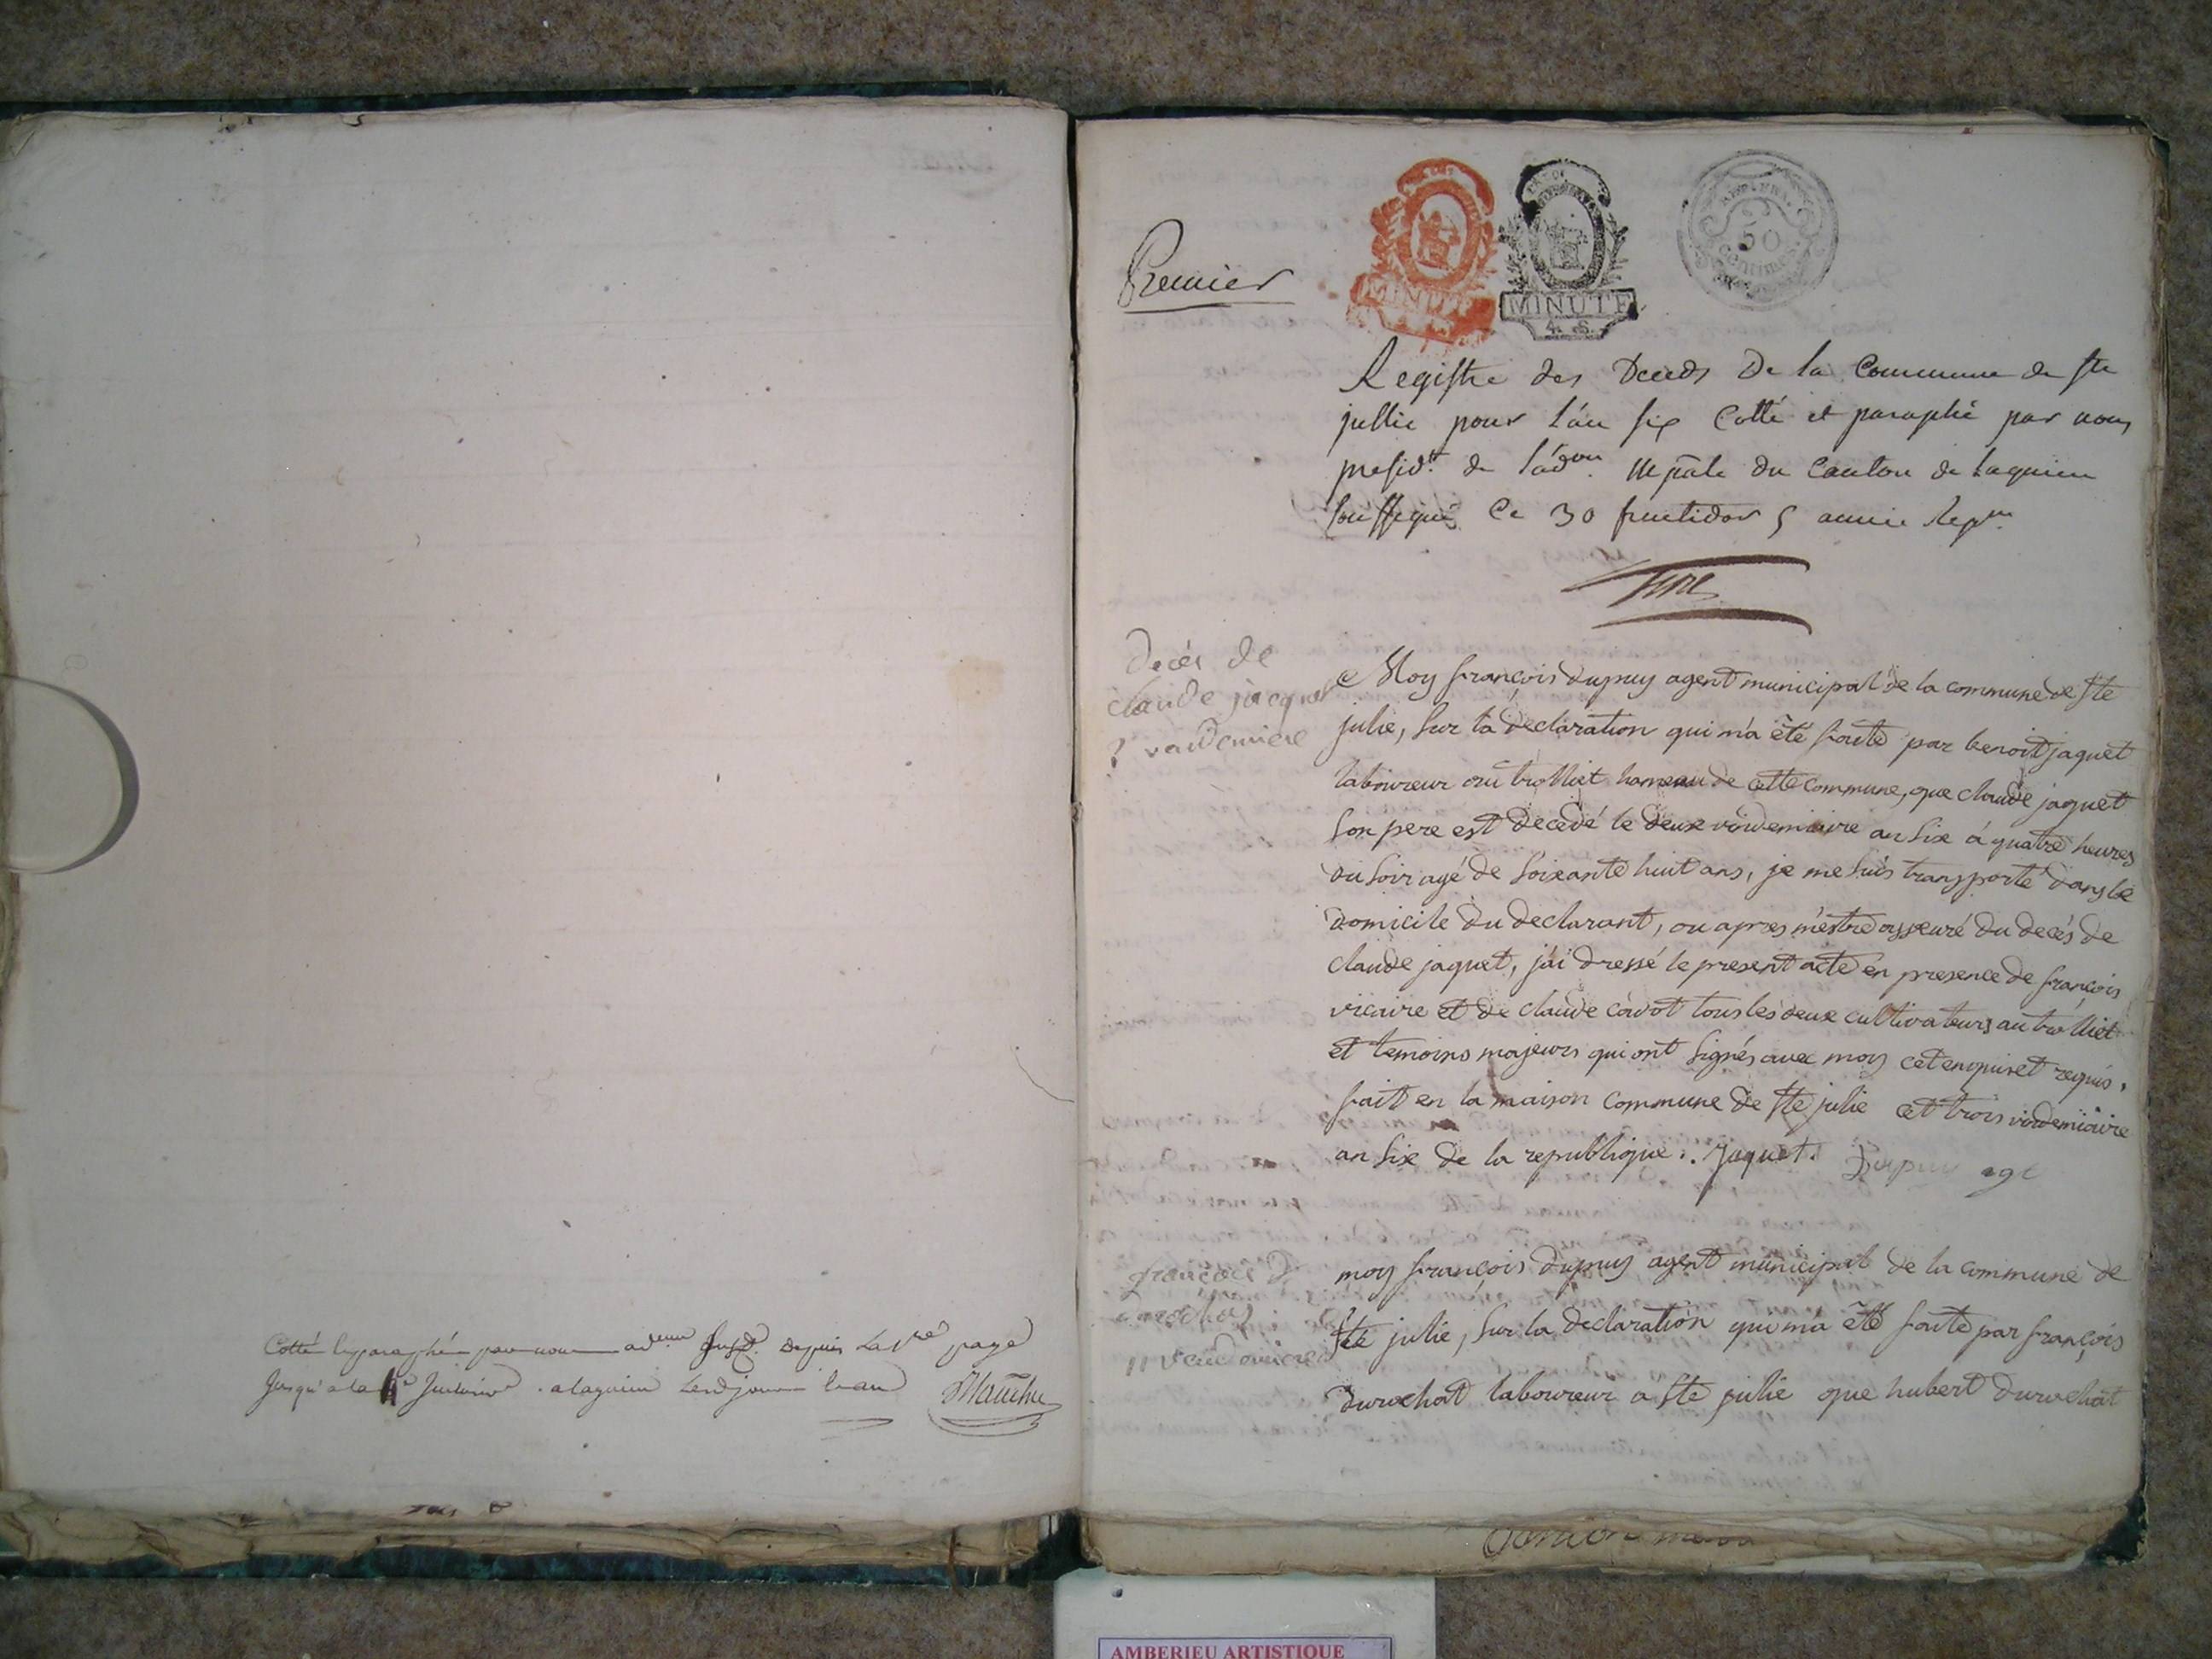 Cotté et paraphé par nous depuis la 1re page
jusqu'a la a lagnieu led jour et an
Premier
MINUTE
MINUTE
4. S.
50
centimes
Registre des Deceds De la Commune de ste
jullie pour l'an six Cotté et paraphé par nous
presidt. de l'adon. mpāle du Canton de lagnieu
soussigné Ce 30 fructidor 5 année Repne.
decés de
claude jacquet
2 vandemiere
Moy françois dupuy agent municipal de la commune de ste
julie, sur la declaration qui m'a été faite par benoit jaquet
laboureur au trolliet hameau de cette commune, que claude jaquet
son pere est decedé le deux vindemiaire an six á quatre heures
du soir agé de soixante huit ans, je me suis transporté dans le
domicile du declarant, ou apres m'estre asseuré du decés de
claude jaquet, j'ai dressé le present acte en presence de françois
vicaire et de claude cavot tous les deux cultivateurs au trolliet
et temoins majeurs qui ont signés avec moy cet enquiret requis,
fait en la maison commune de ste julie cet trois vindemiaire
an six de la republique. Jaquet. Dupuy agt
françois D
11 vendemiere
moy françois dupuy agent municipal de la commune de
ste julie, sur la declaration qui m'a été faite par françois
durochat laboureur a ste julie que hubert durochat
AMBERIEU ARTISTIQUE